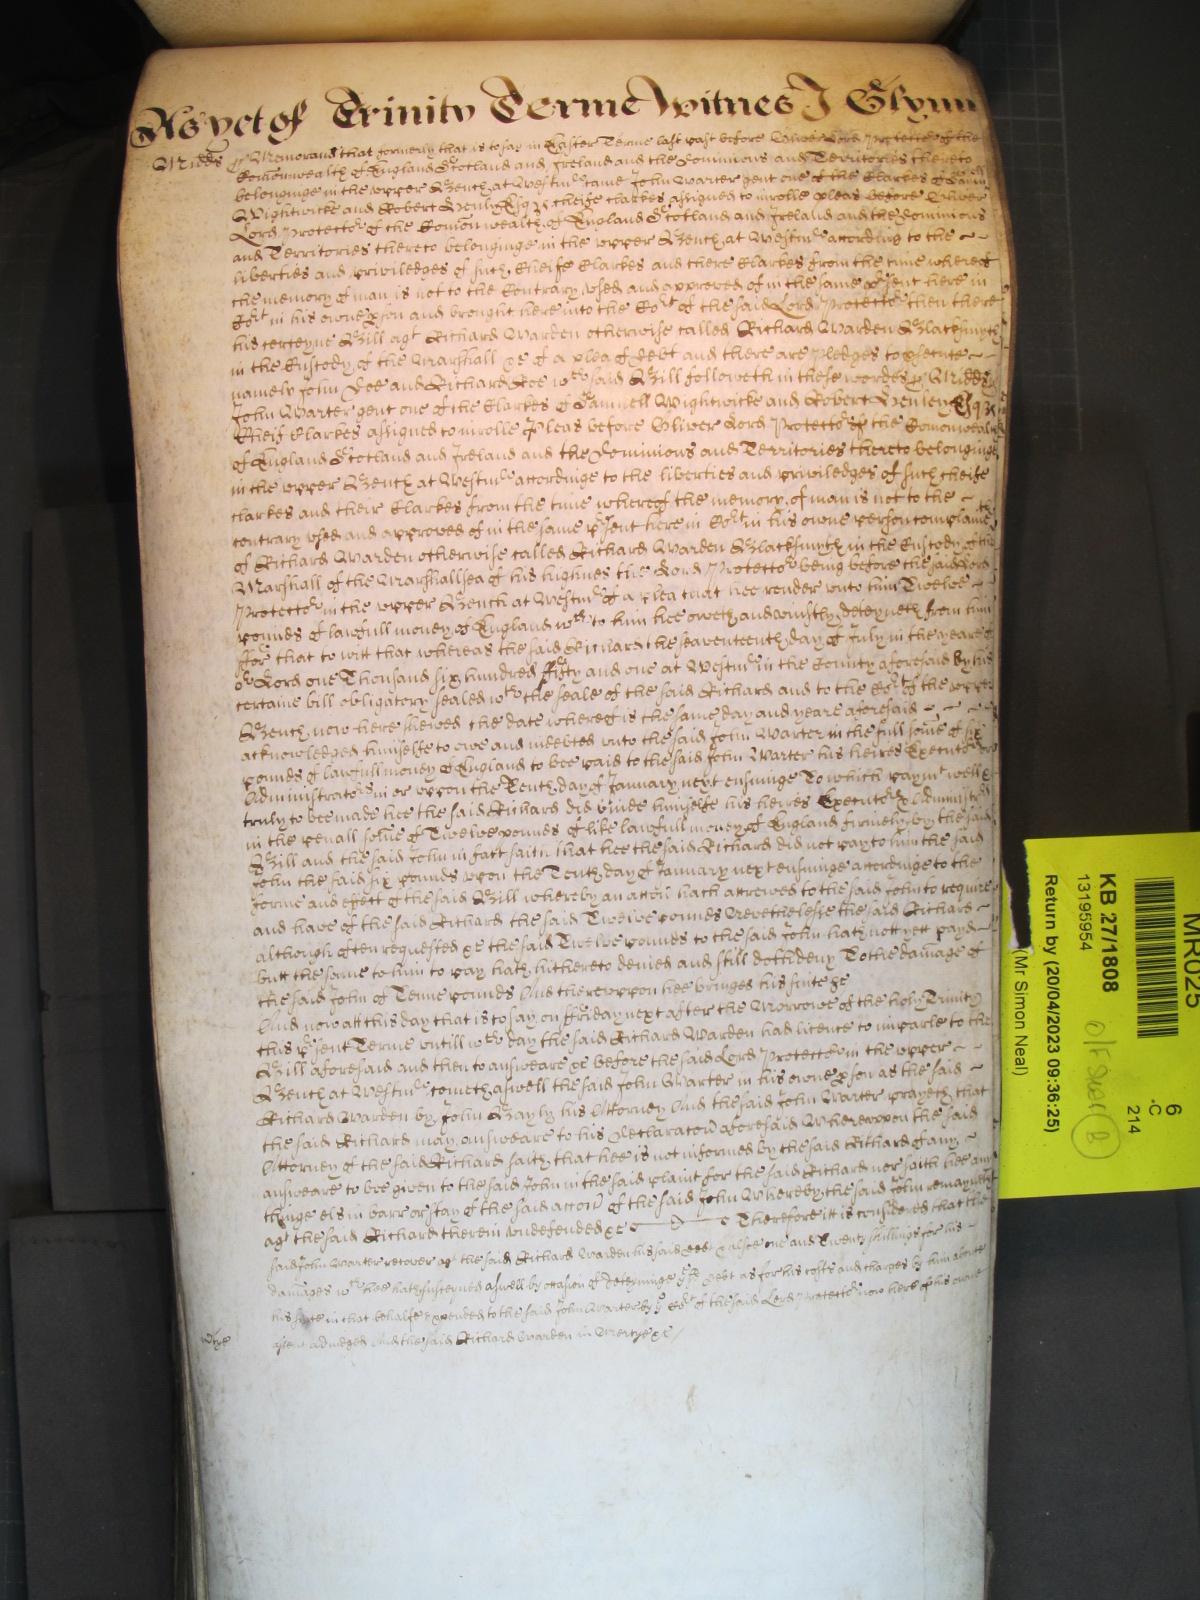 As yet of Trinity Terme Witnes J Glynn
Midds ss Memorand that formerly that is to say in Easter Terme last past before Oliver Lord Protector of the
Comonwealth of England Scotland and Ireland and the Dominions and Territories thereto
belonginge in the upper Bench at Westmr came John Warter gent one of the Clarkes of Samll
Wightwicke and Robert Henley Esqrs cheife clarkes assigned to inrolle pleas before Oliver
Lord Protector of the Comonwealth of England Scotland and Ireland and the Dominions
and Territories thereto belonginge in the upper Bench at Westmr according to the
liberties and priviledges of such Cheife Clarkes and there Clarkes from the time whereof
the memory of man is not to the Contrary used and approved of in the same psent here in
Cort in his owne pson and brought here into the Cort of the said Lord Protector then there
his certeyne Bill agt Richard Warden otherwise called Richard Warden Blacksmyth
in the Custody of the Marshall &c of a plea of debt and there are Pledges to psecute
namely John Doe and Richard Roe wch said Bill followeth in these wordes ss Midds
John Warter gent one of the Clarkes of Samuell Wightwicke and Robert Henley Esqrs
Cheif Clarkes assigned to inrolle Pleas before Oliver Lord Protector of the Comonwealth
of England Scotland and Ireland and the Dominions and Territories thereto belonginge
in the upper Bench at Westmr accordinge to the liberties and priviledges of such cheife
clarkes and their Clarkes from the time whereof the memory of man is not to the
contrary used and approved of in the same psent here in Cort in his owne person complaineth
of Richard Warden otherwise called Richard Warden Blacksmyth in the Custody of the
Marshall of the Marshallsea of his highnes the Lord Protector being before the said Lord
Protector in the upper Bench at Westmr of a plea that hee render unto him Twelve
pounds of lawfull money of England wch to him hee oweth and uniustly deteyneth from him
For that to witt that whereas the said Richard the seaventeenth day of July in the yeare of
or Lord one Thousand six hundred fifty and one at Westmr in the County aforesaid By his
certaine bill obligatory sealed wth the seale of the said Richard and to the Cort of the upper
Bench now here shewed the date whereof is the same day and yeare aforesaid
acknowledged himselfe to owe and indebted unto the said John Warter in the full some of six
pounds of lawfull money of England to bee paid to the said John Warter his heires Executors or
Administrators in or upon the Tenth day of January next ensuinge To which paymt well &
truly to bee made hee the said Richard did binde himselfe his heires Executors & Administrs
in the penall some of Twelve pounds of like lawfull money of England firmely by the said
Bill and the said John in fact saith that hee the said Richard did not pay to him the said
John the said six pounds upon the Tenth day of January next ensuinge accordinge to the
forme and effect of the said Bill whereby an accon hath accrewed to the said John to require
and have of the said Richard the said Twelve pounds Neverthelesse the said Richard
although often requested &c the said Twelve pounds to the said John hath nott yett payd
butt the same to him to pay hath hithereto denied and still doth deny To the damage of
the said John of Tenne pounds And thereuppon hee bringes his suite &c
And now att this day that is to say on Friday next after the Morrowe of the holy Trinity
this psent Terme untill wch day the said Richard Warden had licence to imparle to the
Bill aforesaid and then to answeare &c before the said Lord Protector in the upper
Bench at Westmr cometh aswell the said John Warter in his owne pson as the said
Richard Warden by John Bayly his Attorney And the said John Warter prayeth that
the said Richard may answeare to his Declaracon aforesaid Whereuppon the said
Attorney of the said Richard saith that hee is not informed by the said Richard of any
answeare to bee given to the said John in the said plaint for the said Richard nor saith hee any
thinge els in barr or stay of the said accon of the said John Whereby the said John remayneth
agt the said Richard therein undefended &c Therefore itt is considered that the
said John Warter recover agt the said Richard Warden his said debt & alsoe one and Twenty shillings for his
damages wch hee hath susteyned aswell by occasion of deteyninge of the debt as for his costs and charges by him aboute
his suite in that behalfe expended to the said John Warter by ye Cort of the said Lord Protector now here of his owne
assent adiudged And the said Richard Warden in Mercye &c
Mcye
MR025
6
C
214
KB 27/1808
13195954
Return by (20/04/2023 09:36:25)
(Mr Simon Neal)